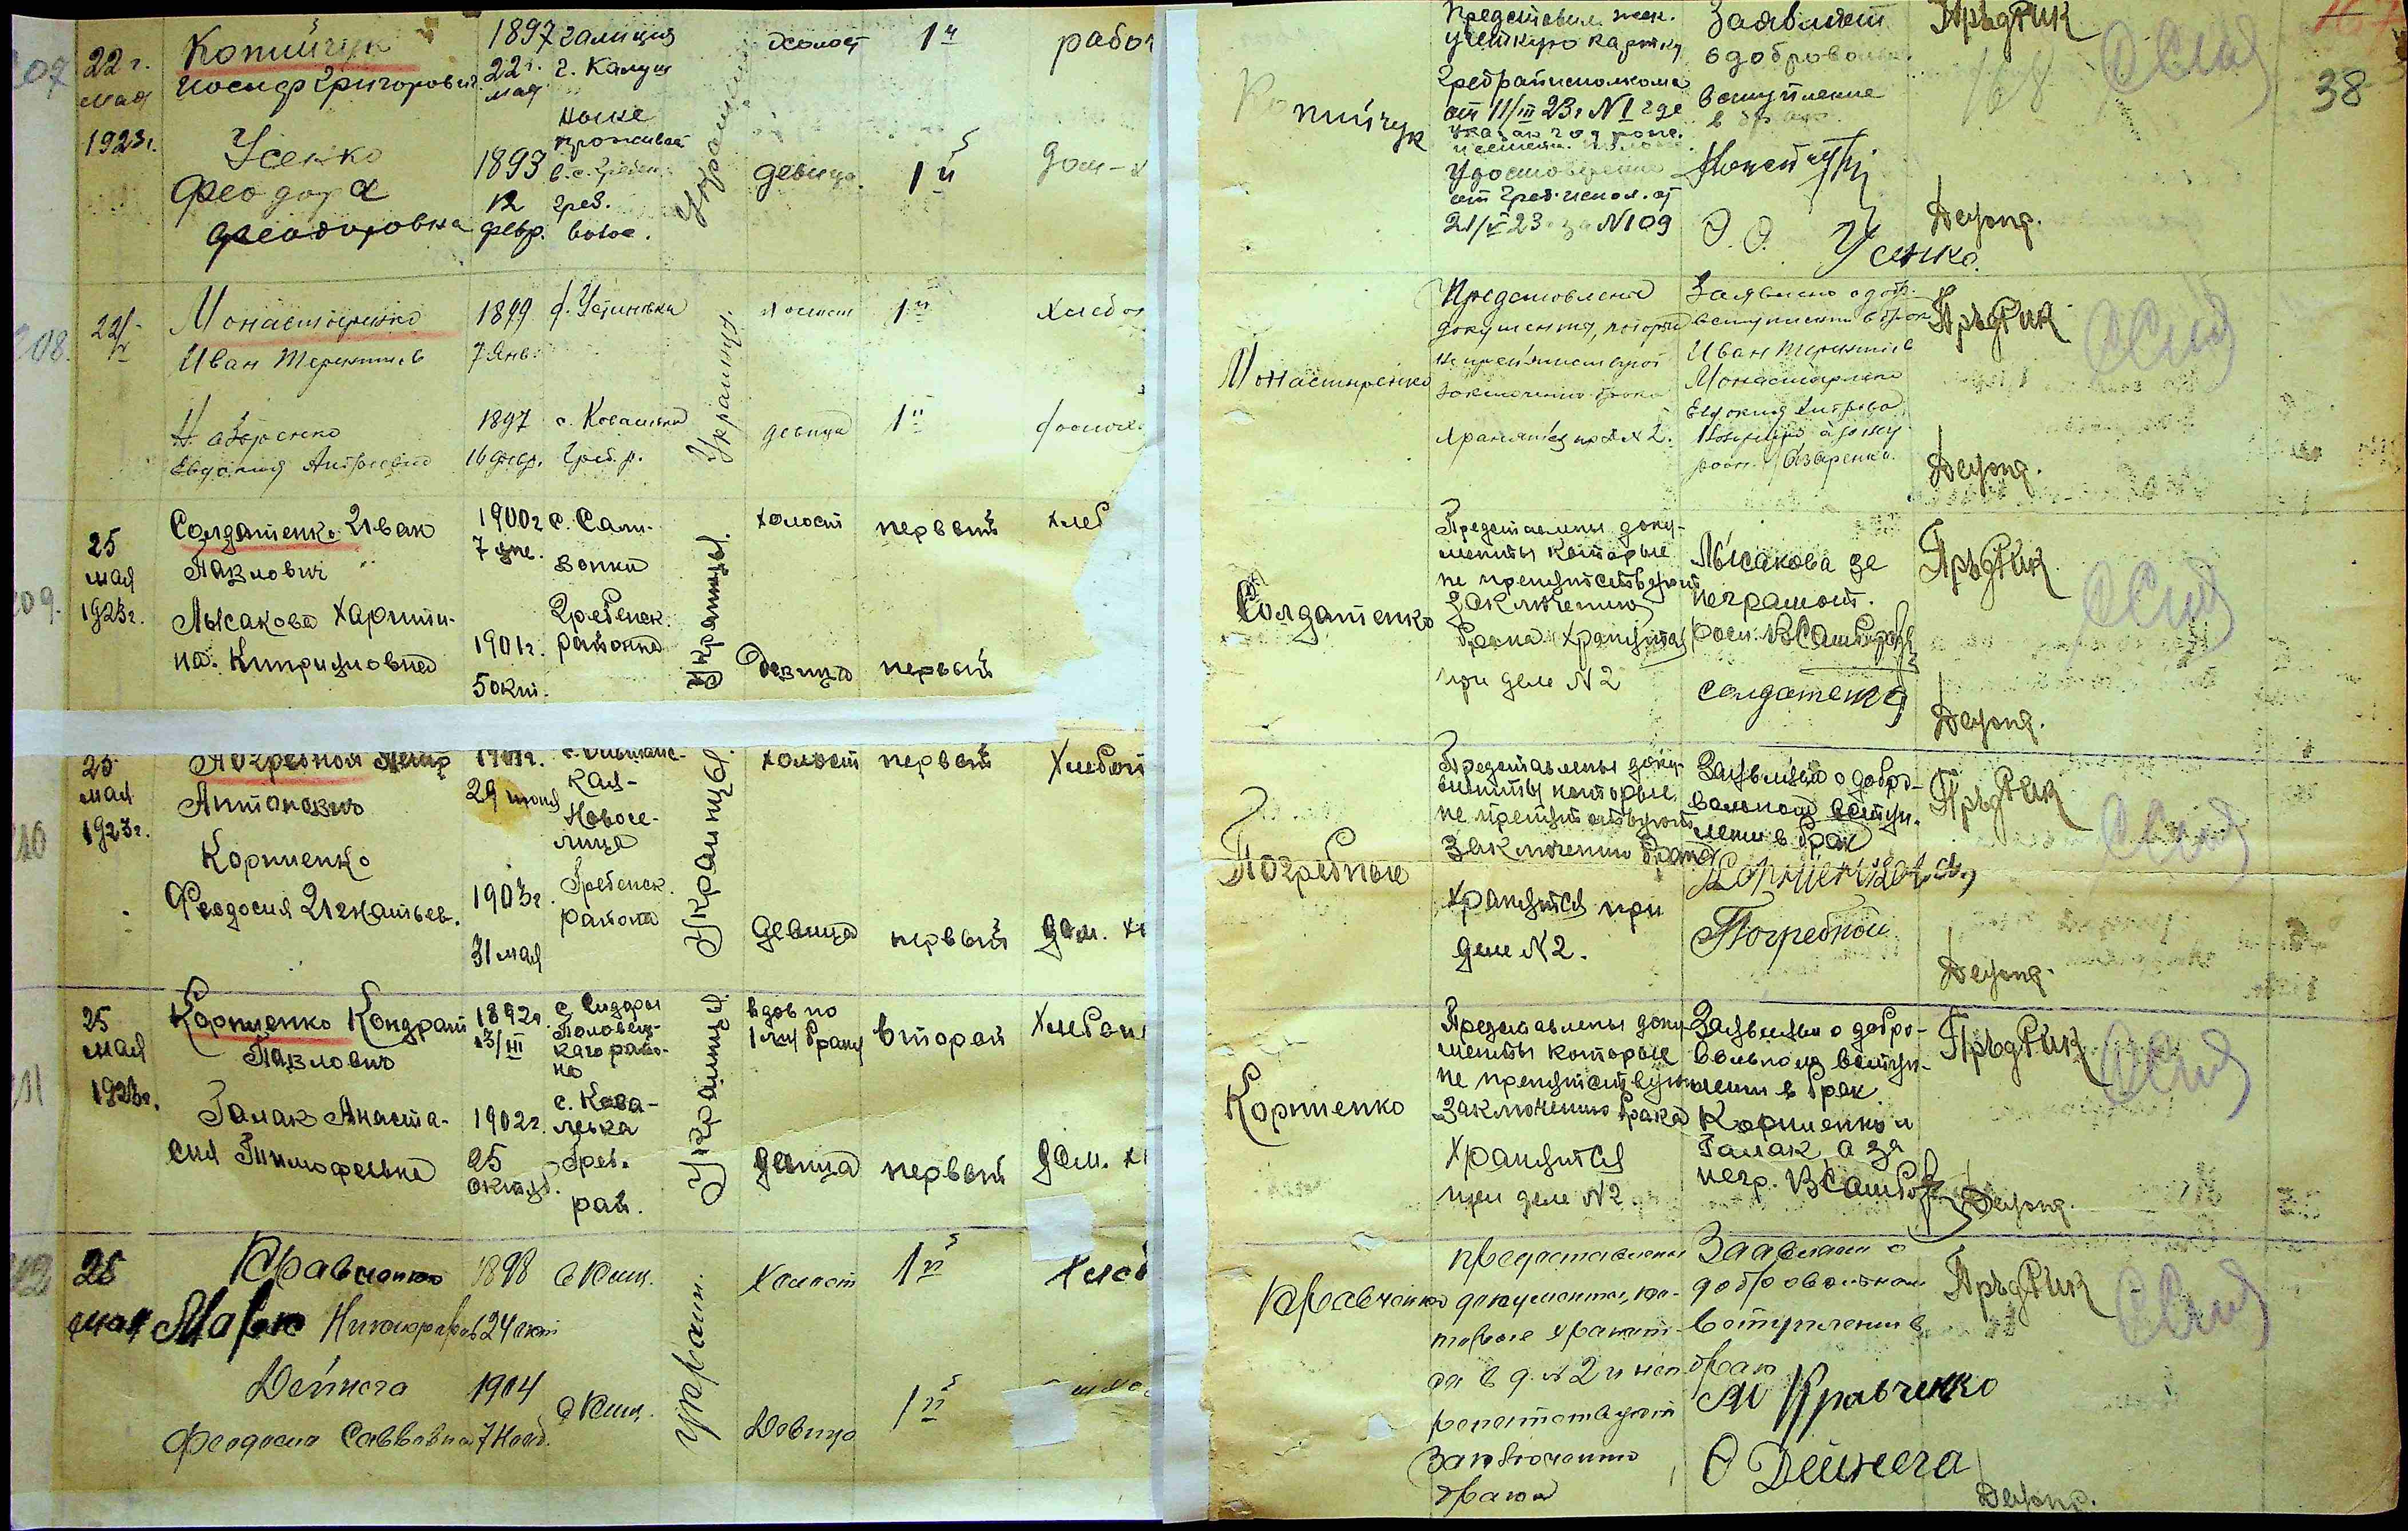 22 г. мая 1923 г.
Копийчук
Иосиф Григорович
1897 22 г. мая
галиция
г. Калуш
ныне
проживает
холост
1й
рабоч
Усенко
Феодора
Феодоровна
1893
12 февр.
Греб.
волос.
девица
1й
дом-х
Копийчук
Представил
учетную карту
Гребрайисполкома
от 11/III 23 г N1 где
Удостоверение
от Греб. испол. от
21/V 23 г за N109
Заявляют
о добровольн.
вступлении
в брак
Ф. Ф. Усенко
ПрьдРик
168
167
38
Делопр.
108.
22/V
Монастыренко
Иван Терентиев
1899
7 Янв.
с. Устиновка
Украинцы.
холост
1й
хлебо
Евдокия Андреевна
1897
16 февр.
с. Ковалевка
Греб. р.
девица
1й
Монастыренко
Представлены
документы, которые
не препятствуют
заключению брака
хранятся при д N 2.
Заявлено о добр.
вступлении в брак
Иван Терентиев
Монастыренко
ПрьдРик
Делопр.
109.
25
мая
1923 г.
Солдатенко Иван
Павлович
1900 г
7 янв.
с. Сали-
вонки
Гребенск.
района
Украинцы.
холост
первый
хлеб
Лысакова Харити-
на Киприяновна
1901 г.
5 окт.
девица
первый
Солдатенко
Представлены доку-
менты которые
не препятствуют
заключению
брака хранятся
при деле N 2
Лысакова за
неграмот.
солдатенко
ПрьдРик
Делопр.
110
25
мая
1923 г.
Погребной Петр
Антонович
1901 г.
29 июня
Новосе-
лица
Гребенск.
района
Украинцы.
холост
первый
Хлебоп
Корниенко
Феодосия Игнатьев.
1903 г.
31 мая
девица
первый
дом. хо
Погребные
Представлены доку-
менты которые
не препятствуют
заключению брака
хранятся при
деле N 2.
Заявили о добро-
вольном вступ-
лении в брак
Погребной
ПрьдРик
Делопр.
111
25
мая
1923 г.
Корниенко Кондрат
Павлович
1892 г.
13/III
с. Сидоры
Половец-
каго райо-
на
Украинцы.
вдов по
1му браку
второй
Хлебоп
Галак Анаста-
сия Тимофеевна
1902 г.
25
октяб.
с. Кова-
левка
Греб.
рай.
девица
первый
дом. хо
Корниенко
Представлены доку-
менты которые
не препятствуют
заключению брака
хранятся
при деле N 2
Заявили о добро-
вольном вступ-
лении в брак.
Корниенко и
Галак а за
негр.
ПрьдРик
Делопр.
112
25
мая
Кравченко
Марко Никифоров
1898
24
Украин.
Холост
1й
Хлеб
Дейнега
Феодосия Савовна
1904
7 Нояб.
Девица
1й
Кравченко
Представлены
документы, ко-
торые хранят-
ся в д. N 2 и не
препятствуют
заключению
брака
Заявлено о
добровольном
вступлении в
брак
М Кравченко
Ф Дейнега
ПрьдРик
Делопр.